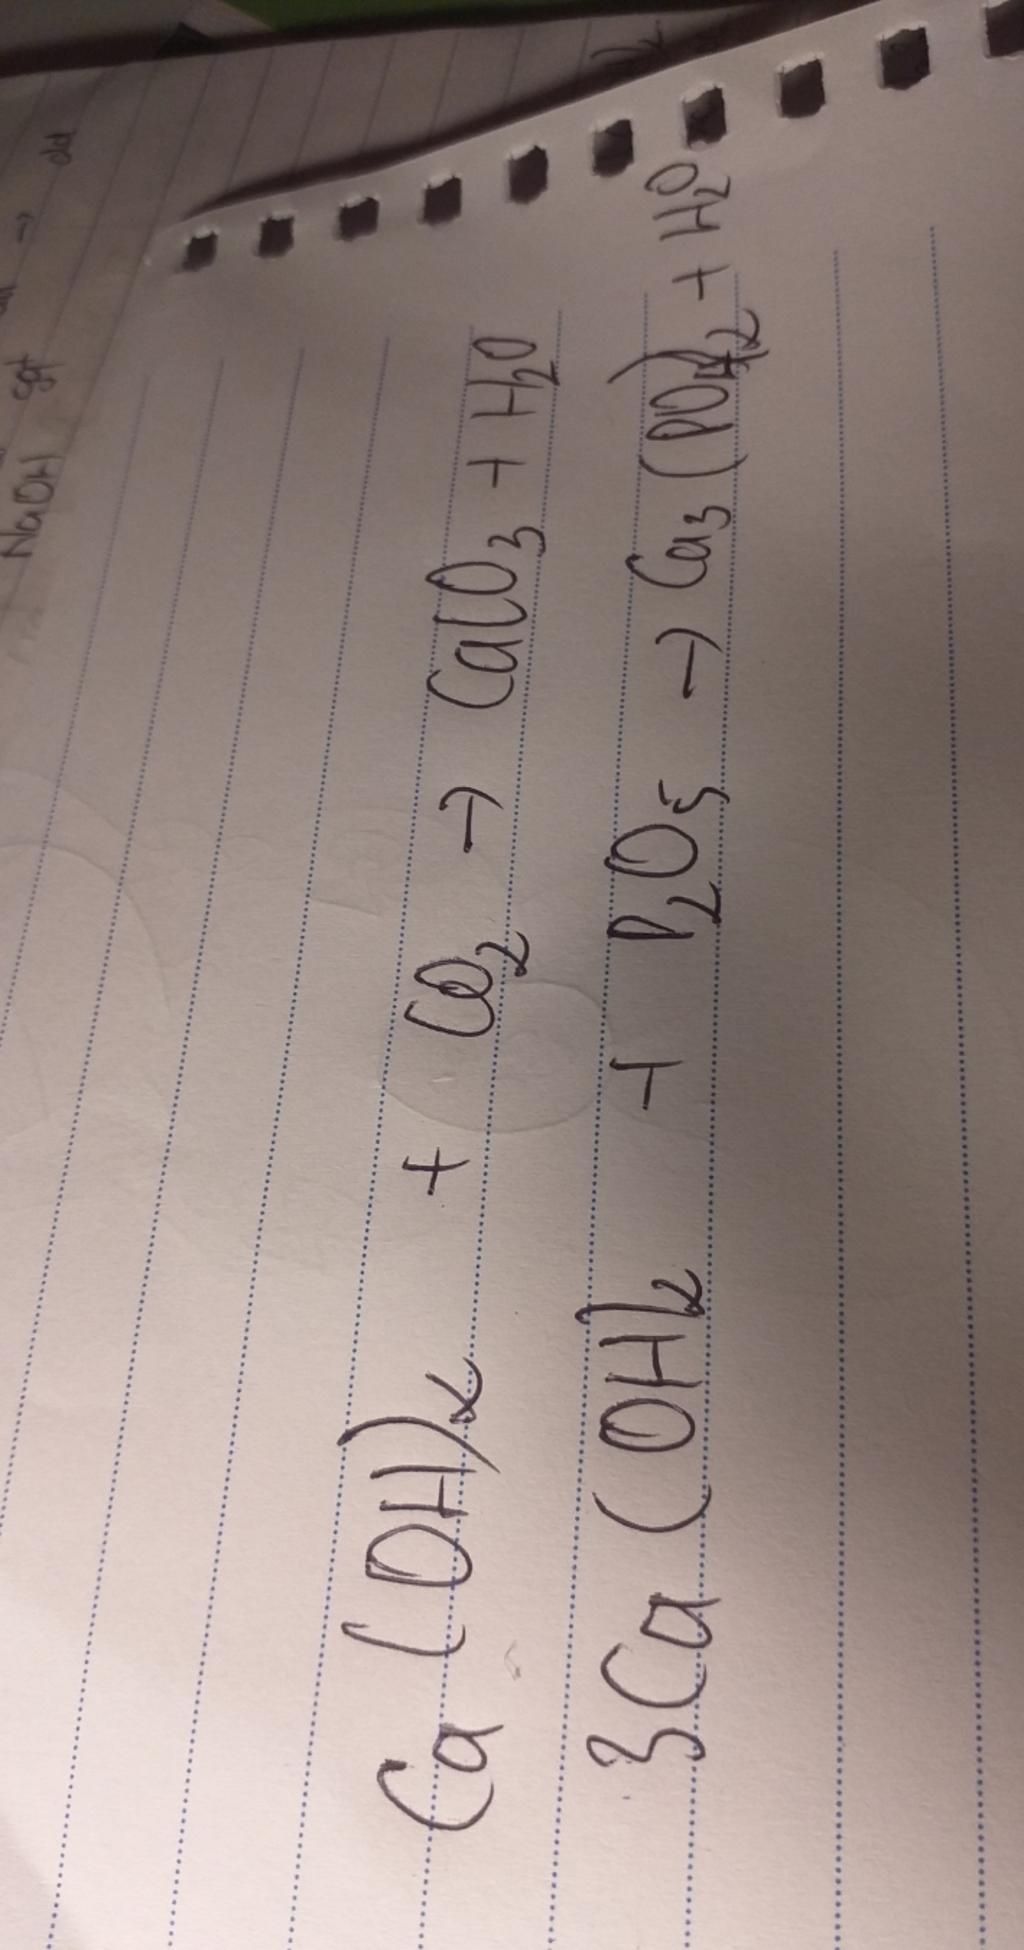 Ca(OH)₂ + CO₂ → CaCO₃ + H₂O
3Ca(OH)₂ + P₂O₅ → Ca₃(PO₄)₂ + H₂O
NaOH